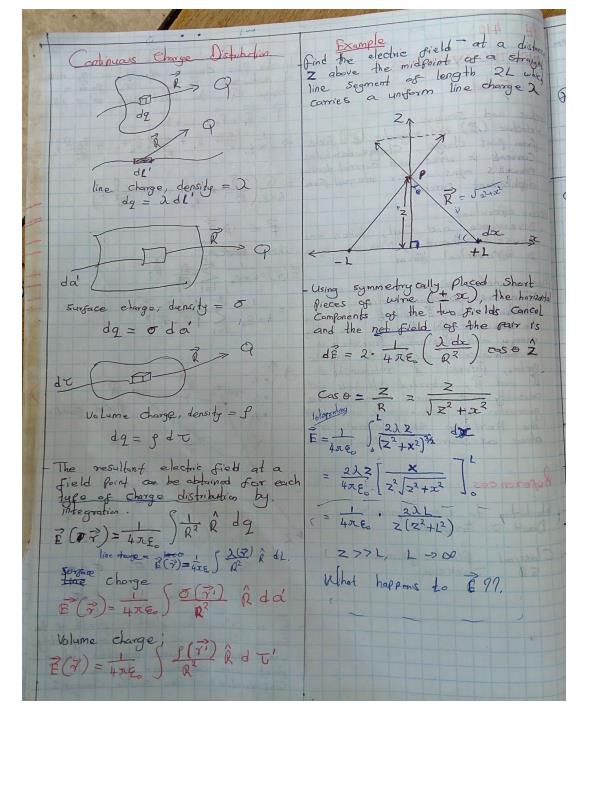 Continuous Charge Distribution
R⃗
Q
dq
Q
R⃗
dl'
line charge, density = λ
dq = λ dl'
R⃗
Q
da'
surface charge, density = σ
dq = σ da'
Q
R⃗
dτ
Volume charge, density = ρ
dq = ρ dτ
- The resultant electric field at a
field point can be obtained for each
type of charge distribution by
integration.
E⃗(r⃗) = 1/4πε₀ ∫ 1/R² R̂ dq
line charge = E⃗(r⃗) = 1/4πε₀ ∫ λ(r⃗)/R² R̂ dL
Surface
charge
E⃗(r⃗) = 1/4πε₀ ∫ σ(r⃗')/R² R̂ da'
Volume charge;
E⃗(r⃗) = 1/4πε₀ ∫ ρ(r⃗')/R² R̂ dτ'
Example
find the electric field at a distance
Z above the midpoint of a straight
line segment of length 2L which
carries a uniform line charge λ
Z
P
θ
R⃗ = √z²+x²
z
dx
x
-L
+L
- Using symmetrycally placed short
pieces of wire (± x), the horizontal
Components of the two fields cancel
and the net field of the pair is
dE⃗ = 2· 1/4πε₀ (λ dx/R²) cos θ ẑ
Cos θ = Z/R = Z/√z² + x²
Integrating
E⃗ = 1/4πε₀ ∫₀ᴸ 2λz/(z² + x²)^3/2 dx
= 2λz/4πε₀ [x/z²√z² + x²]₀ᴸ
= 1/4πε₀ · 2λL/z(z²+L²)
Z >> L, L → ∞
What happens to E⃗ ??.